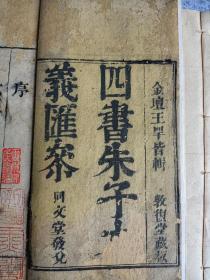 金壇王罕皆輯
敦復堂藏板
四書朱子
義匯叅
同文堂發兌
序